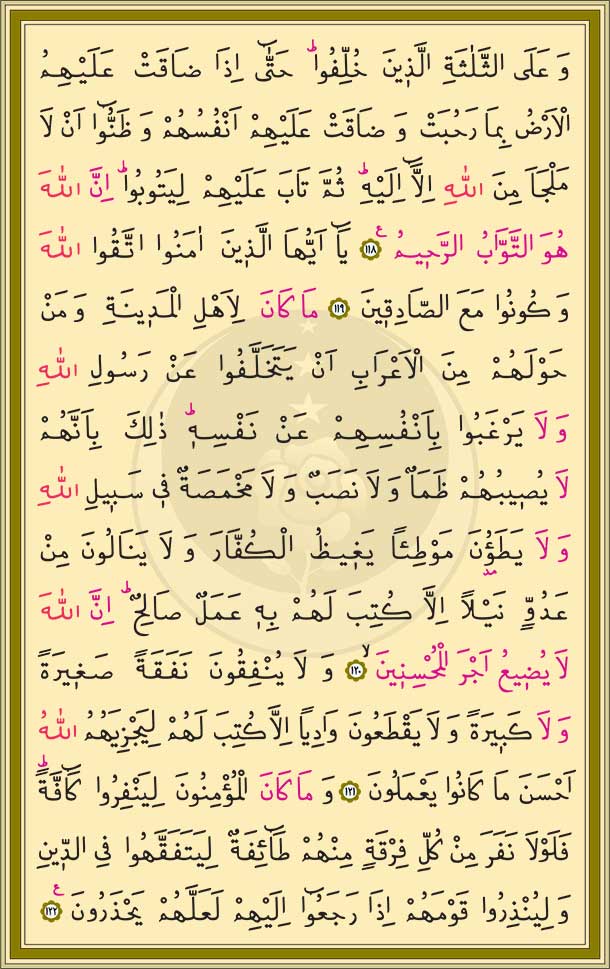 وَعَلَى الثَّلٰثَةِ الَّذٖينَ خُلِّفُواؕ حَتّٰٓى اِذَا ضَاقَتْ عَلَيْهِمُ
الْاَرْضُ بِمَا رَحُبَتْ وَضَاقَتْ عَلَيْهِمْ اَنْفُسُهُمْ وَظَنُّٓوا اَنْ لَا
مَلْجَاَ مِنَ اللّٰهِ اِلَّٓا اِلَيْهِؕ ثُمَّ تَابَ عَلَيْهِمْ لِيَتُوبُواؕ اِنَّ اللّٰهَ
هُوَ التَّوَّابُ الرَّحٖيمُ ع ﴿١١٨﴾ يَٓا اَيُّهَا الَّذٖينَ اٰمَنُوا اتَّقُوا اللّٰهَ
وَكُونُوا مَعَ الصَّادِقٖينَ ﴿١١٩﴾ مَا كَانَ لِاَهْلِ الْمَدٖينَةِ وَمَنْ
حَوْلَهُمْ مِنَ الْاَعْرَابِ اَنْ يَتَخَلَّفُوا عَنْ رَسُولِ اللّٰهِ
وَلَا يَرْغَبُوا بِاَنْفُسِهِمْ عَنْ نَفْسِهٖؕ ذٰلِكَ بِاَنَّهُمْ
لَا يُصٖيبُهُمْ ظَمَاٌ وَلَا نَصَبٌ وَلَا مَخْمَصَةٌ فٖي سَبٖيلِ اللّٰهِ
وَلَا يَطَؤُنَ مَوْطِئًا يَغٖيظُ الْكُفَّارَ وَلَا يَنَالُونَ مِنْ
عَدُوٍّ نَيْلًا اِلَّا كُتِبَ لَهُمْ بِهٖ عَمَلٌ صَالِحٌؕ اِنَّ اللّٰهَ
لَا يُضٖيعُ اَجْرَ الْمُحْسِنٖينَۙ ﴿١٢٠﴾ وَلَا يُنْفِقُونَ نَفَقَةً صَغٖيرَةً
وَلَا كَبٖيرَةً وَلَا يَقْطَعُونَ وَادِيًا اِلَّا كُتِبَ لَهُمْ لِيَجْزِيَهُمُ اللّٰهُ
اَحْسَنَ مَا كَانُوا يَعْمَلُونَ ﴿١٢١﴾ وَمَا كَانَ الْمُؤْمِنُونَ لِيَنْفِرُوا كَٓافَّةًؕ
فَلَوْلَا نَفَرَ مِنْ كُلِّ فِرْقَةٍ مِنْهُمْ طَٓائِفَةٌ لِيَتَفَقَّهُوا فِي الدّٖينِ
وَلِيُنْذِرُوا قَوْمَهُمْ اِذَا رَجَعُٓوا اِلَيْهِمْ لَعَلَّهُمْ يَحْذَرُونَ ع ﴿١٢٢﴾